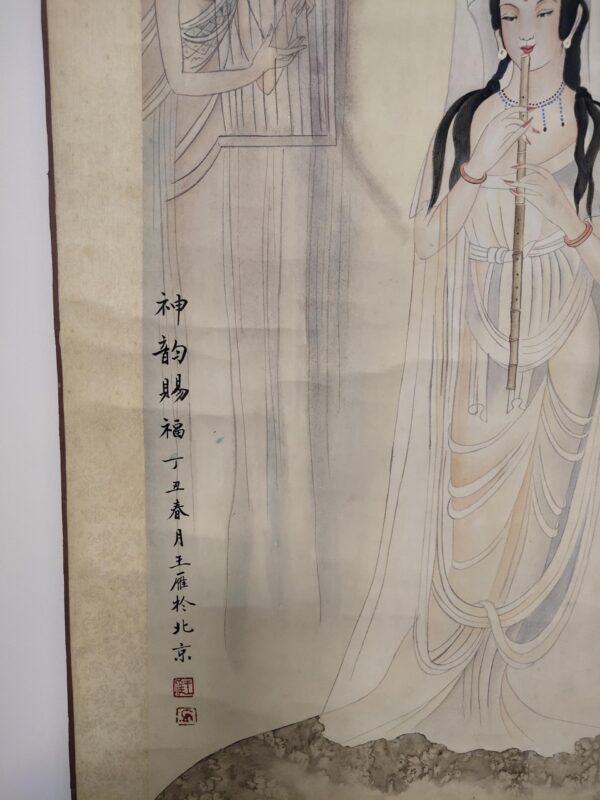 神韵賜福丁丑春月王雁於北京